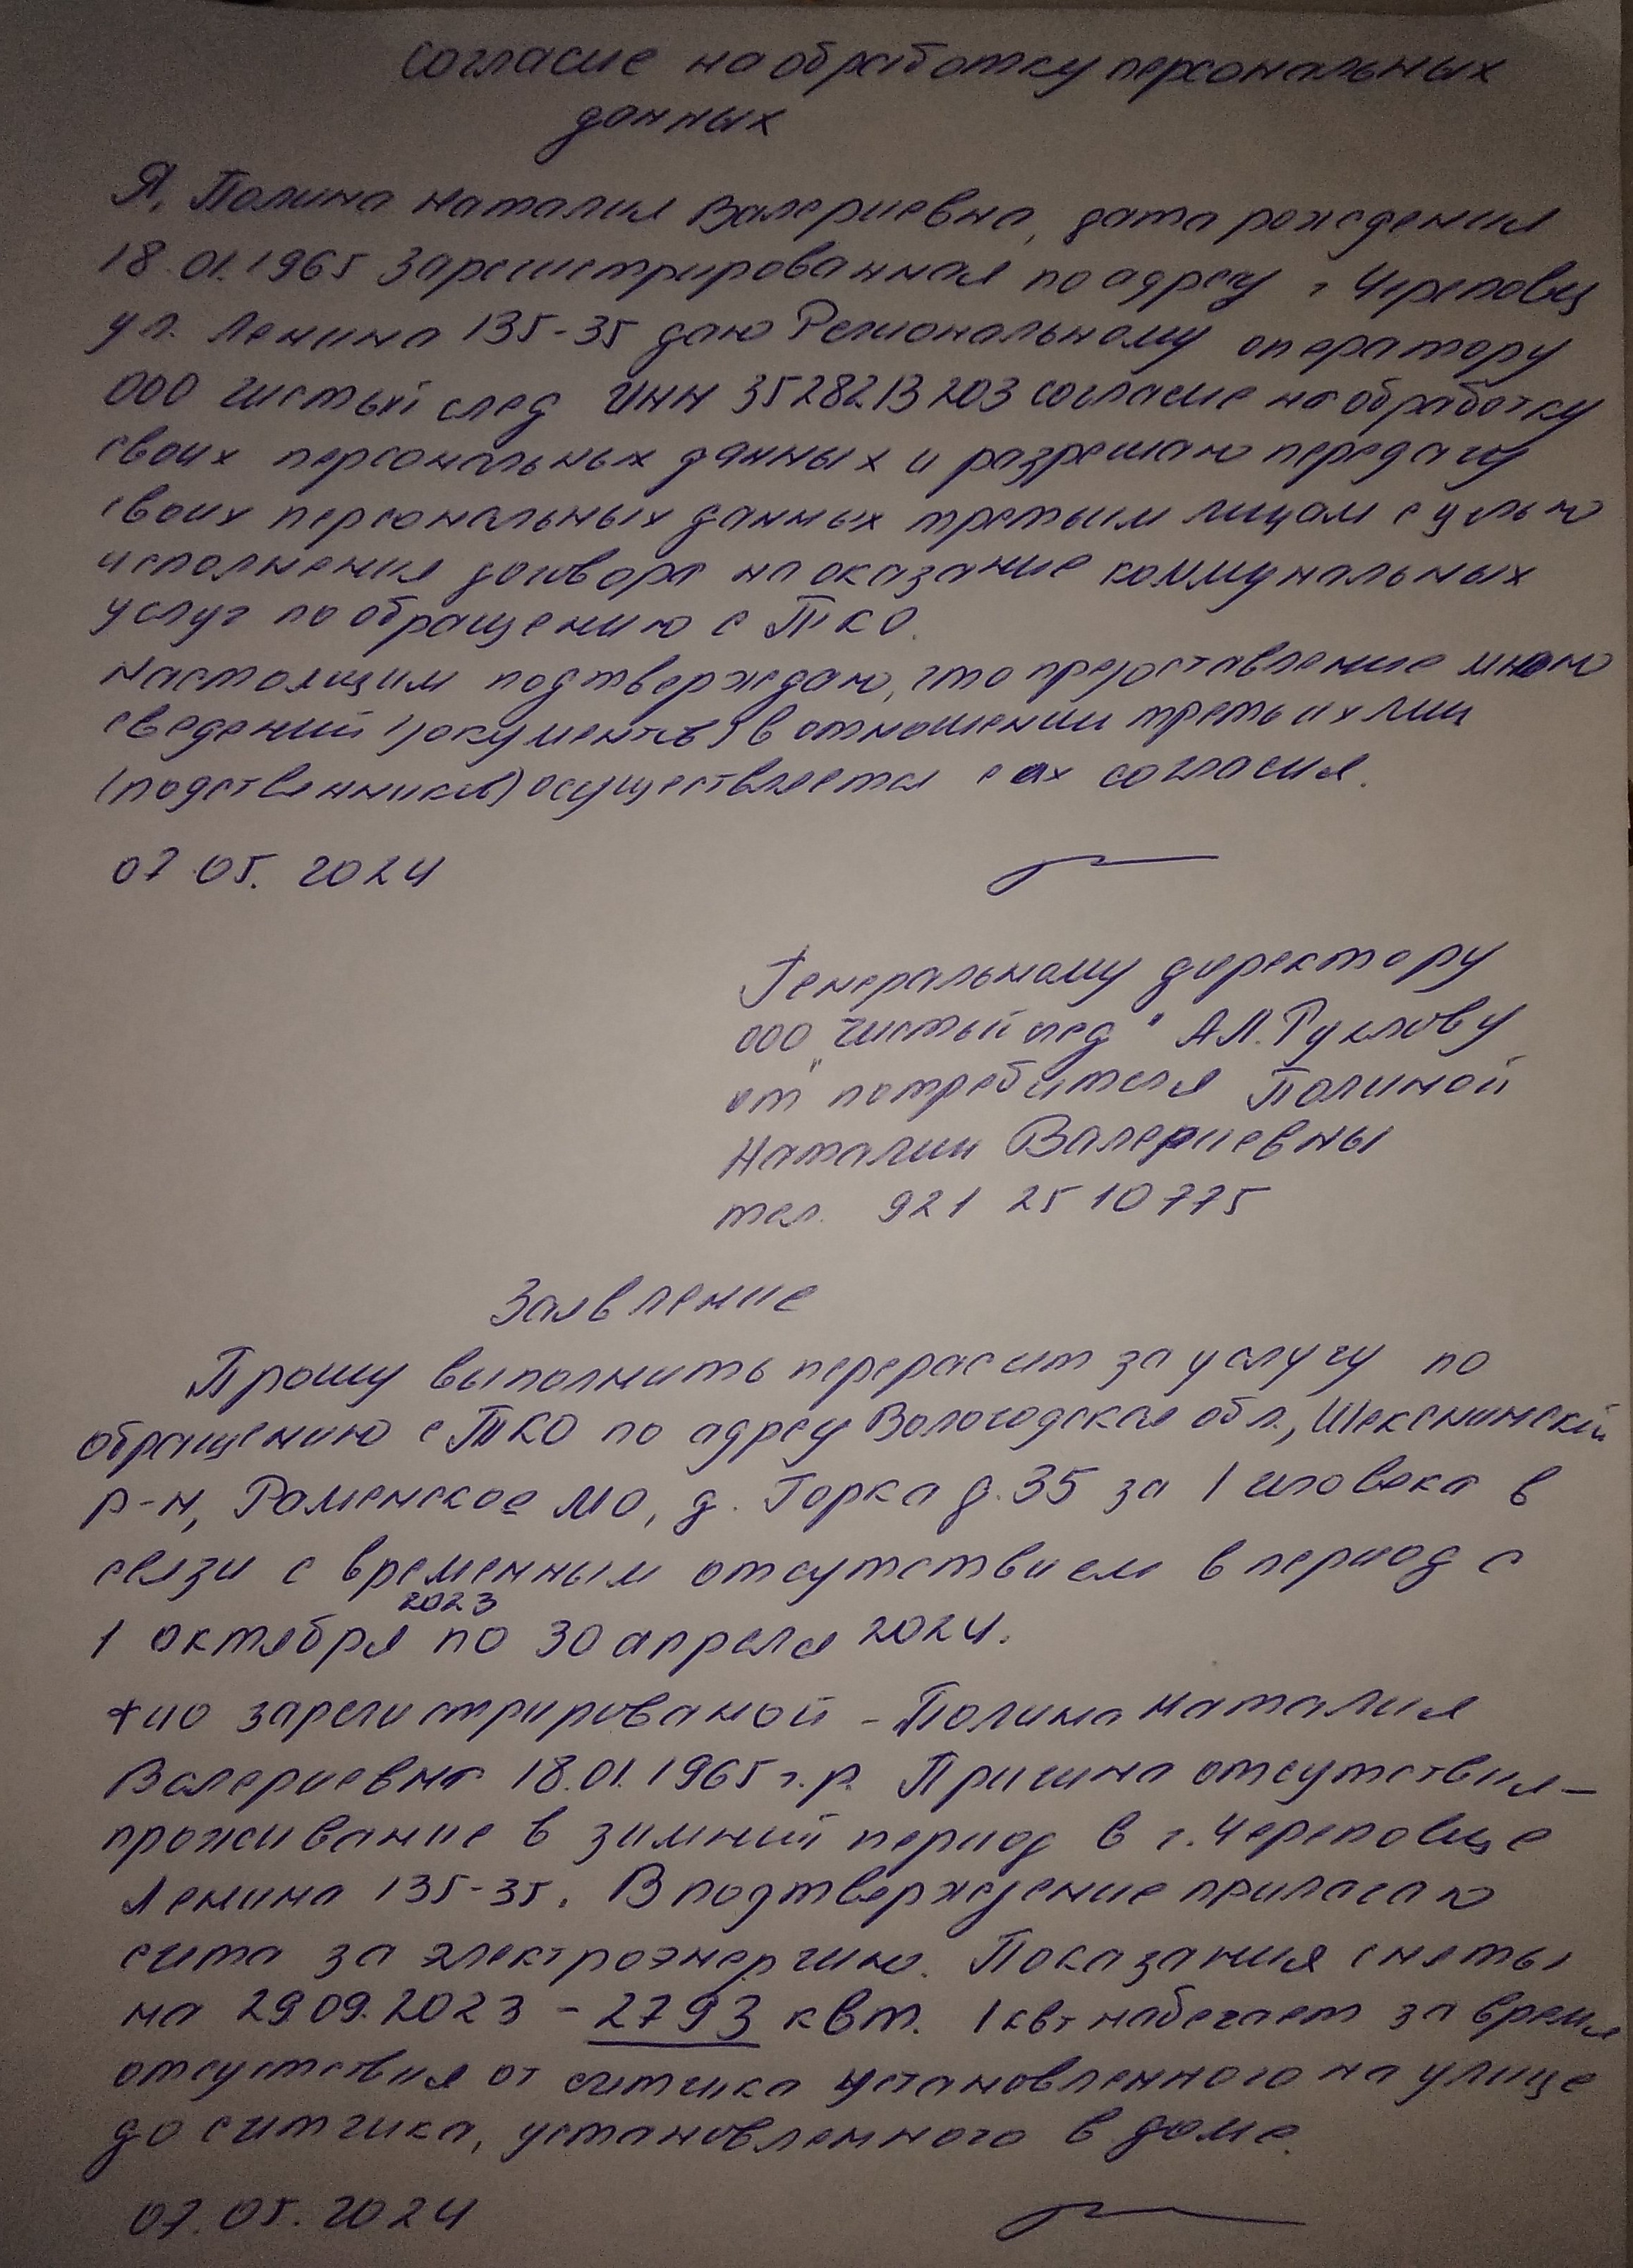 Согласие на обработку персональных
данных
Я, Полина Наталия Валериевна, дата рождения
18.01.1965 зарегистрированная по адресу г Череповец
ул. Ленина 135-35 даю Региональному оператору
ООО Чистый след ИНН 3528213203 согласие на обработку
своих персональных данных и разрешаю передачу
своих персональных данных третьим лицам с целью
исполнения договора на оказание коммунальных
услуг по обращению с ТКО.
Настоящим подтверждаю, что предоставление мною
сведений (документов) в отношении третьих лиц
(родственников) осуществляется с их согласия.
07.05.2024
Генеральному директору
ООО "Чистый след" А.Л. Руслову
от потребителя Полиной
Наталии Валериевны
тел. 921 25 10775
Заявление
Прошу выполнить перерасчет за услугу по
обращению с ТКО по адресу Вологодская обл., Шекснинский
р-н, Раменское МО, д. Горка д. 35 за 1 человека в
связи с временным отсутствием в период с
2023
1 октября по 30 апреля 2024.
Фио зарегистрированой - Полина Наталия
Валериевна 18.01.1965 г.р. Причина отсутствия -
проживание в зимний период в г. Череповце
Ленина 135-35. В подтверждение прилагаю
счета за электроэнергию. Показания сняты
на 29.09.2023 - 2793 квт. 1 квт набегает за время
отсутствия от счетчика установленного на улице
до счетчика, установленного в доме.
07.05.2024